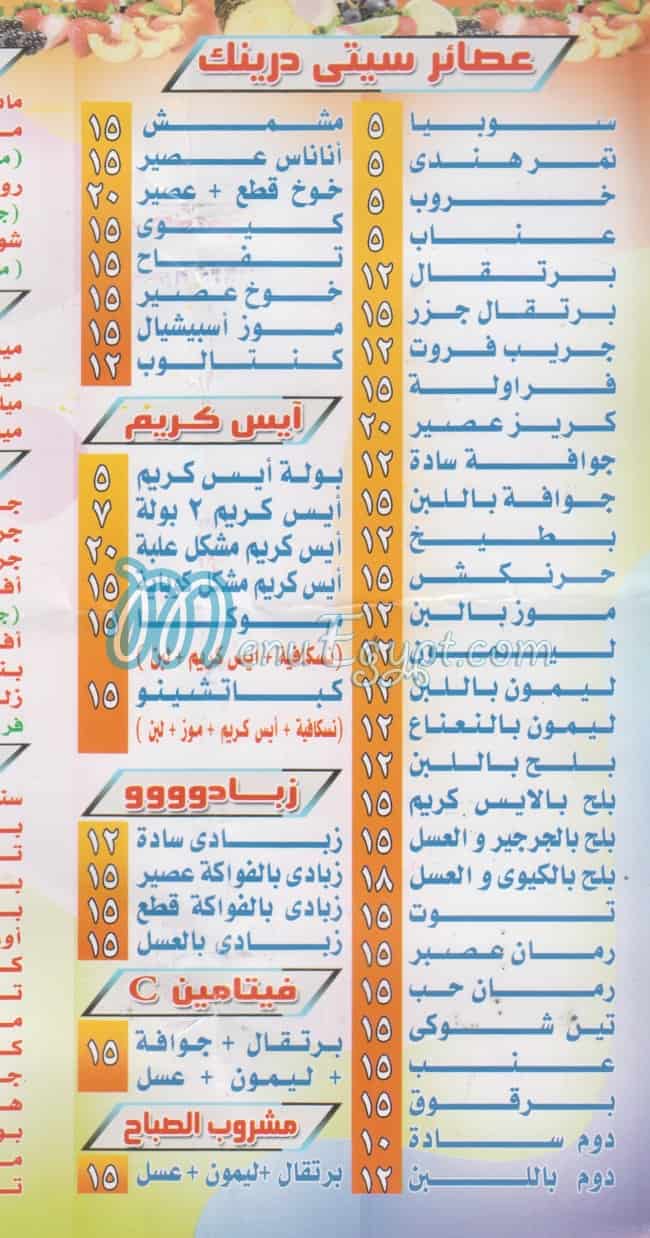 عصائر سيتى درينك
سوبيا ٥
تمر هندى ٥
خروب ٥
عناب ٥
برتقال ١٢
برتقال جزر ١٥
جريب فروت ١٢
فراولة ١٥
كريز عصير ٢٠
جوافة سادة ١٢
جوافة باللبن ١٥
بطيخ ١٢
حرنكش ١٥
موز بالبن ١٢
١٢
ليمون باللبن ١٢
ليمون بالنعناع ١٢
بلح باللبن ١٢
بلح بالايس كريم ١٥
بلح بالجرجير و العسل ١٥
بلح بالكيوى و العسل ١٨
توت ١٥
رمان عصير ١٥
رمان حب ١٥
تين شوكى ١٥
عنب ١٥
برقوق ١٥
دوم سادة ١٠
دوم باللبن ١٢
مشمش ١٥
أناناس عصير ١٥
خوخ قطع + عصير ٢٠
كيوى ١٥
تفاح ١٥
خوخ عصير ١٥
موز أسبيشيال ١٥
كنتالوب ١٢
آيس كريم
بولة أيس كريم ٥
أيس كريم ٢ بولة ٧
أيس كريم مشكل علبة ٢٠
أيس كريم مشكل ١٥
١٥
(نسكافية + أيس كريم + لبن)
كباتشينو ١٥
(نسكافية + أيس كريم + موز + لبن)
زبادوووو
زبادى سادة ١٢
زبادى بالفواكة عصير ١٥
زبادى بالفواكة قطع ١٥
زبادى بالعسل ١٥
فيتامين C
برتقال + جوافة ١٥
+ ليمون + عسل
مشروب الصباح
برتقال + ليمون + عسل ١٥
MenuEgypt.com